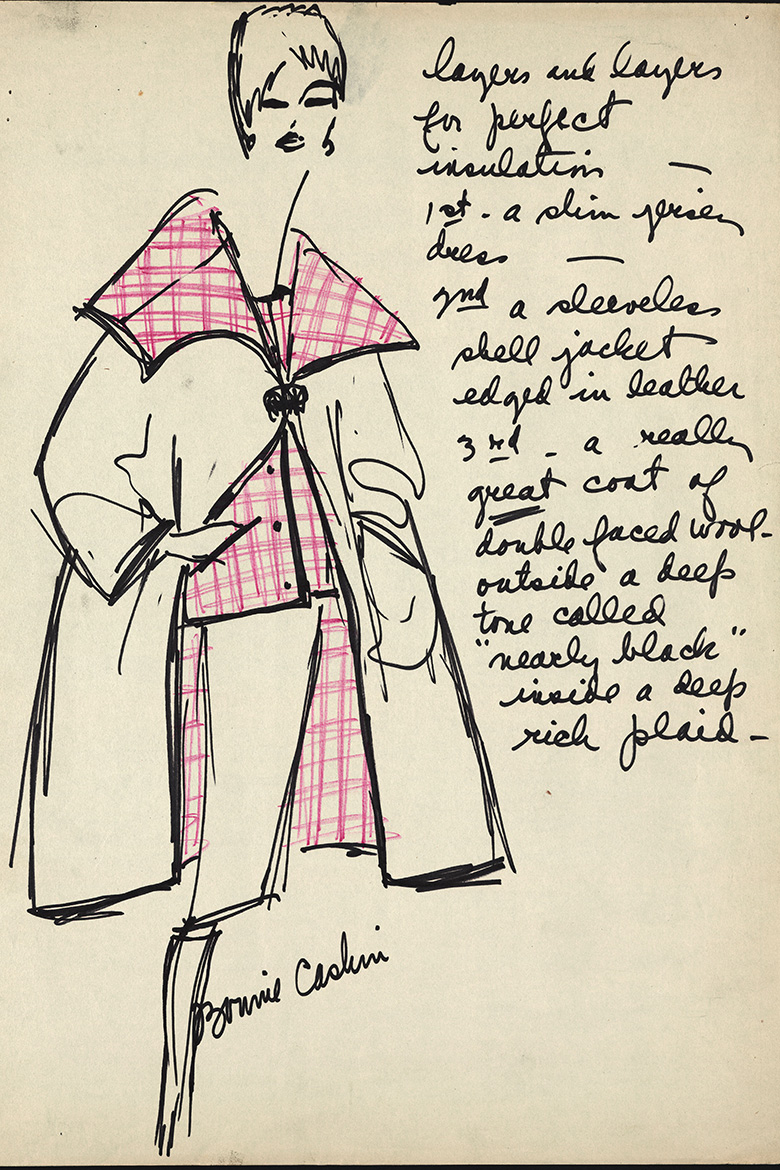 layers and layers
for perfect
insulation —
1st - a slim jersey
dress —
2nd a sleeveless
shell jacket
edged in leather
3rd - a really
great coat of
double faced wool-
outside a deep
tone called
"nearly black"
inside a deep
rich plaid -
Bonnie Cashin